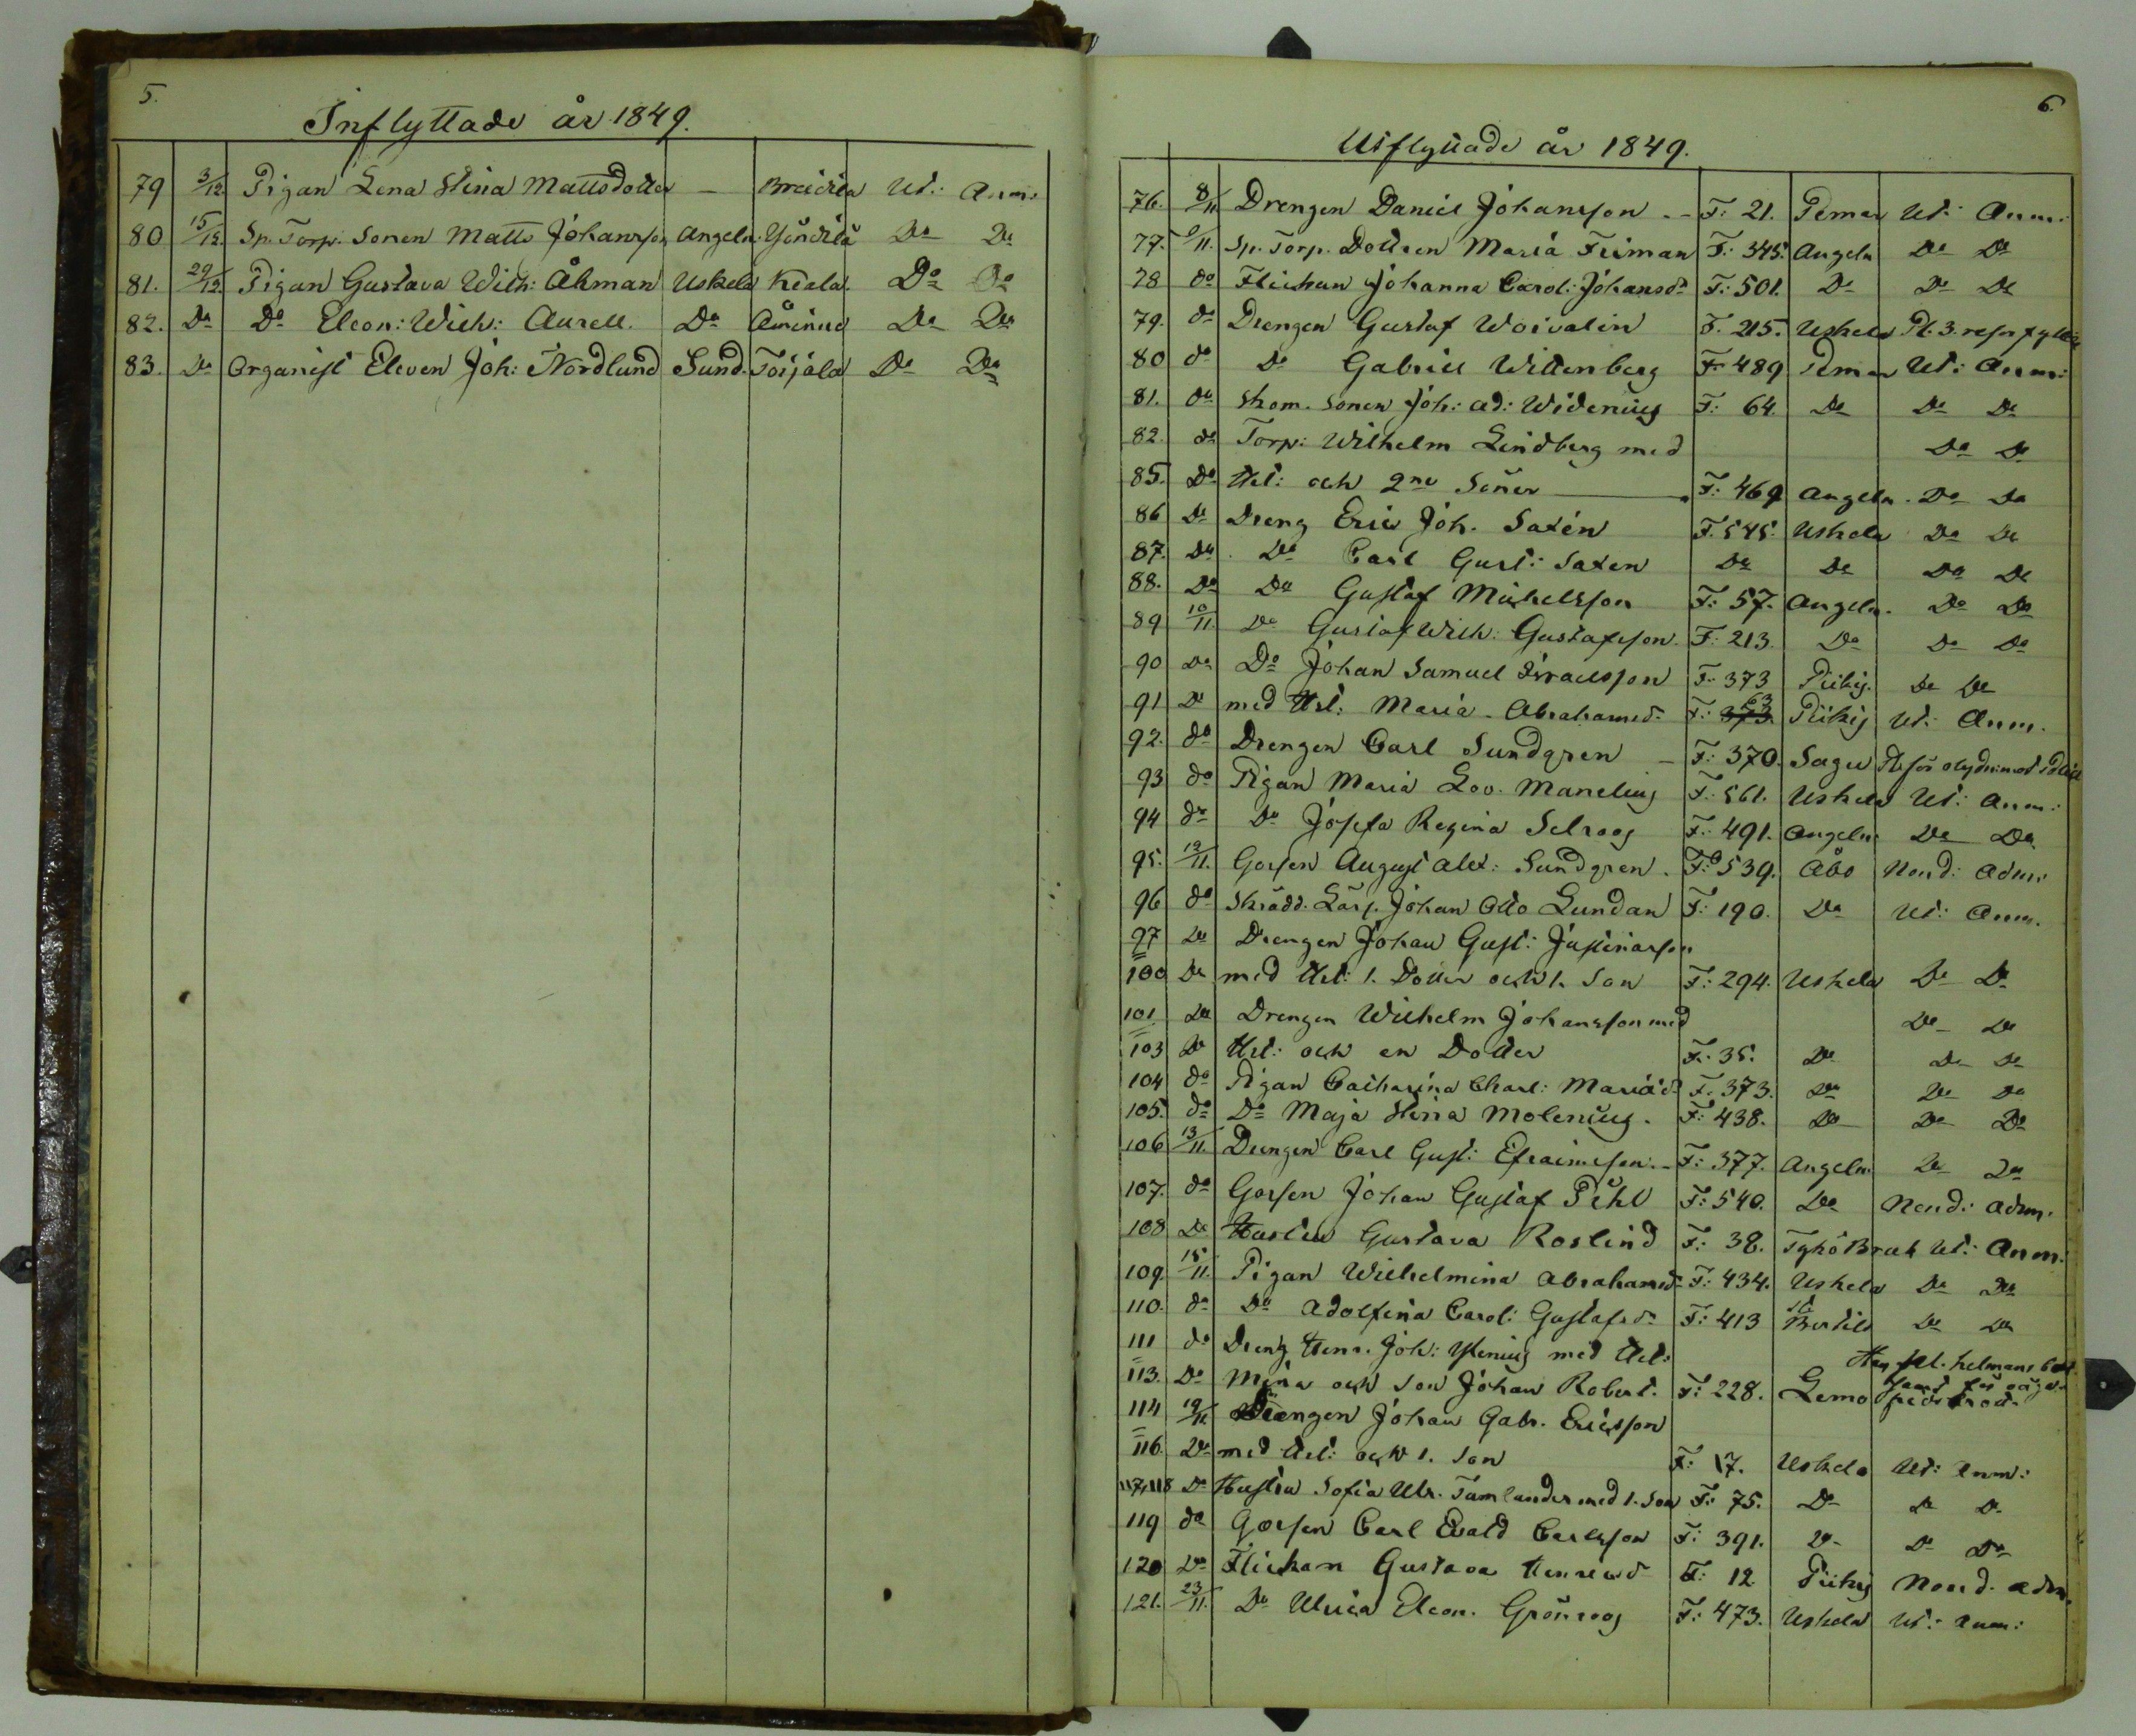 5.
Inflyttade år 1849.
79 3/12 Pigan Lena Stina Mattsdotter — Ut: Anm:
80 15/12 Sp. Torp. Sonen Matts Johansson Angeln. Do Do
81. 29/12. Pigan Gustava Wilh: Åhman Uskela Kiala. Do Do
82. Do Do Eleon: Wilh: Aurell. Do Åminne Do Do
83. Do Organist Eleven Joh: Nordlund Sund. Toijala Do Do
6.
Utflyttade år 1849.
76. 8/11 Drengen Daniel Johansson — F: 21. Pemar Ut: Anm:
77. 9/11. Sp. Torp. Dottren Maria Friman F: 345. Angeln Do Do
78 do Flickan Johanna Carol: Johansdr F: 501. Do Do Do
79. do Drengen Gustaf Woivalin F. 215. Uskela Pl. 3. resor fylleri
80 do Do Gabriel Wittenberg F 489 Pemar Ut: Anm:
81. do Skom. Sonen Joh: Ad: Widenius F: 64. Do Do Do
82. do Torp: Wilhelm Lindberg med Do Do
85. Do Hst: och 2ne Söner F: 469 Angeln. Do Do
86 Do Dreng Eric Joh. Saxén F. 545. Uskela Do Do
87. Do Do Carl Gust: Saxen Do Do Do Do
88. Do Do Gustaf Michelsson F: 57. Angeln. Do Do
89 10/11. Do Gustaf Wilh: Gustafsson. F: 213. Do Do Do
90 Do Do Johan Samuel Israelsson F. 373 Piikij. Do Do
91 Do med Hst: Maria Abrahamsd: F: 373 63 Piikij Ut: Anm.
92. do Drengen Carl Sundgren — F: 370. Sagu
93 do Pigan Maria Lov. Manelius F. 561. Uskela Ut: Anm:
94 do Do Josefa Regina Selroos F: 491. Angeln Do Do
95. 12/11. Gossen August Alex: Sundgren. F: 539. Åbo Nond: Adm:
96 do Skrädd. Lärl. Johan Otto Lundan F: 190. Do Ut: Anm.
97 Do Drengen Johan Gust: Justinasson
100 Do med Hst: 1. Dotter och 1. Son F: 294. Uskela Do Do
101 Do Drengen Wilhelm Johansson med Do Do
103 Do Hst: och en Dotter F: 35. Do Do Do
104 do Pigan Catharina Charl: Mariäd: F. 373. Do Do Do
105. do Do Maja Stina Molenius. F: 438. Do Do Do
106 13/11. Drengen Carl Gust: Efraimsson. F: 377. Angeln Do Do
107. do Gossen Johan Gustaf Pihl F: 540. Do Nond: Adm.
108 Do Hustru Gustava Roslind F: 38. Tykö Bruk Ut: Anm:
109. 15/11. Pigan Wilhelmina Abrahamsd: F: 434. Uskela Do Do
110. do Do Adolfina Carol: Gustafsdr F: 413 St. Bertils Do Do
111 do Dreng Henr. Joh: Ylenius med Hst:
113. Do Mina och son Johan Robert. F: 228. Lemo
114 19/11 Drengen Johan Gabr. Ericsson
116. Do med Hst: och 1. Son F: 17. Uskela Ut: Anm:
117,118 Do Hustru Sofia Ulr. Tamlander med 1. Son F: 75. Do Do Do
119 do Gossen Carl Evald Carlsson F: 391. Do Do Do
120 Do Flickan Gustava Henricsd F: 12 Piikij Nond. Adm.
121. 23/11. Do Ulrica Eleon. Grönroos F: 473. Uskela Ut: Anm: